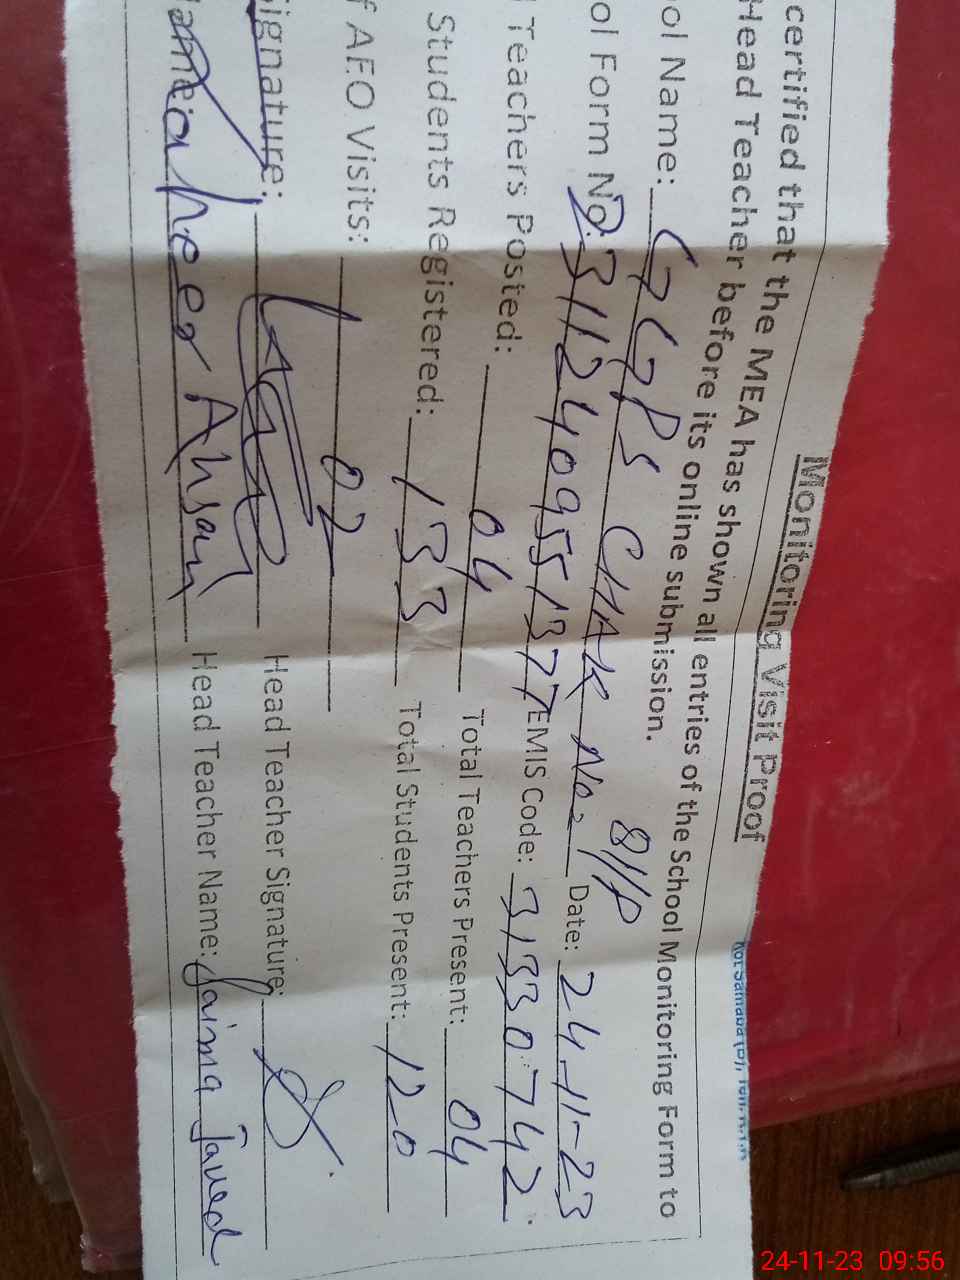 Monitoring Visit Proof
certified that the MEA has shown all entries of the School Monitoring Form to
Head Teacher before its online submission.
ol Name: GGPS CHAK No. 8/1P Date: 24-11-23
ol Form No: 23112409551377 EMIS Code: 31330742
Teachers Posted: 04 Total Teachers Present: 04
Students Registered: 133 Total Students Present: 120
f AEO Visits: 02
ignature: Head Teacher Signature:
ame: Ahsan Head Teacher Name: Saima Javed
24-11-23 09:56